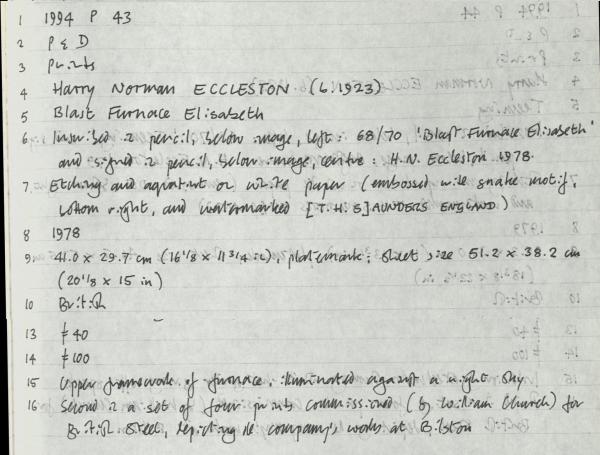 1 1994 P 43
2 P & D
3 Prints
4 Harry Norman ECCLESTON (b.1923)
5 Blast Furnace Elisabeth
6 Inscribed in pencil, below image, left: 68/70 'Blast Furnace Elisabeth'
and signed in pencil, below image, centre: H.N. Eccleston 1978.
7 Etching and aquatint on white paper (embossed with snake motif,
bottom right, and watermarked [T.H.S]AUNDERS ENGLAND.)
8 1978
9 41.0 x 29.7 cm (16 1/8 x 11 3/4 in), platemark; sheet size 51.2 x 38.2 cm
(20 1/8 x 15 in)
10 British
13 £40
14 £100
15 Upper framework of furnace, illuminated against a night sky
16 Second in a set of four prints commissioned (by William Church) for
British Steel, depicting the company's works at Bilston